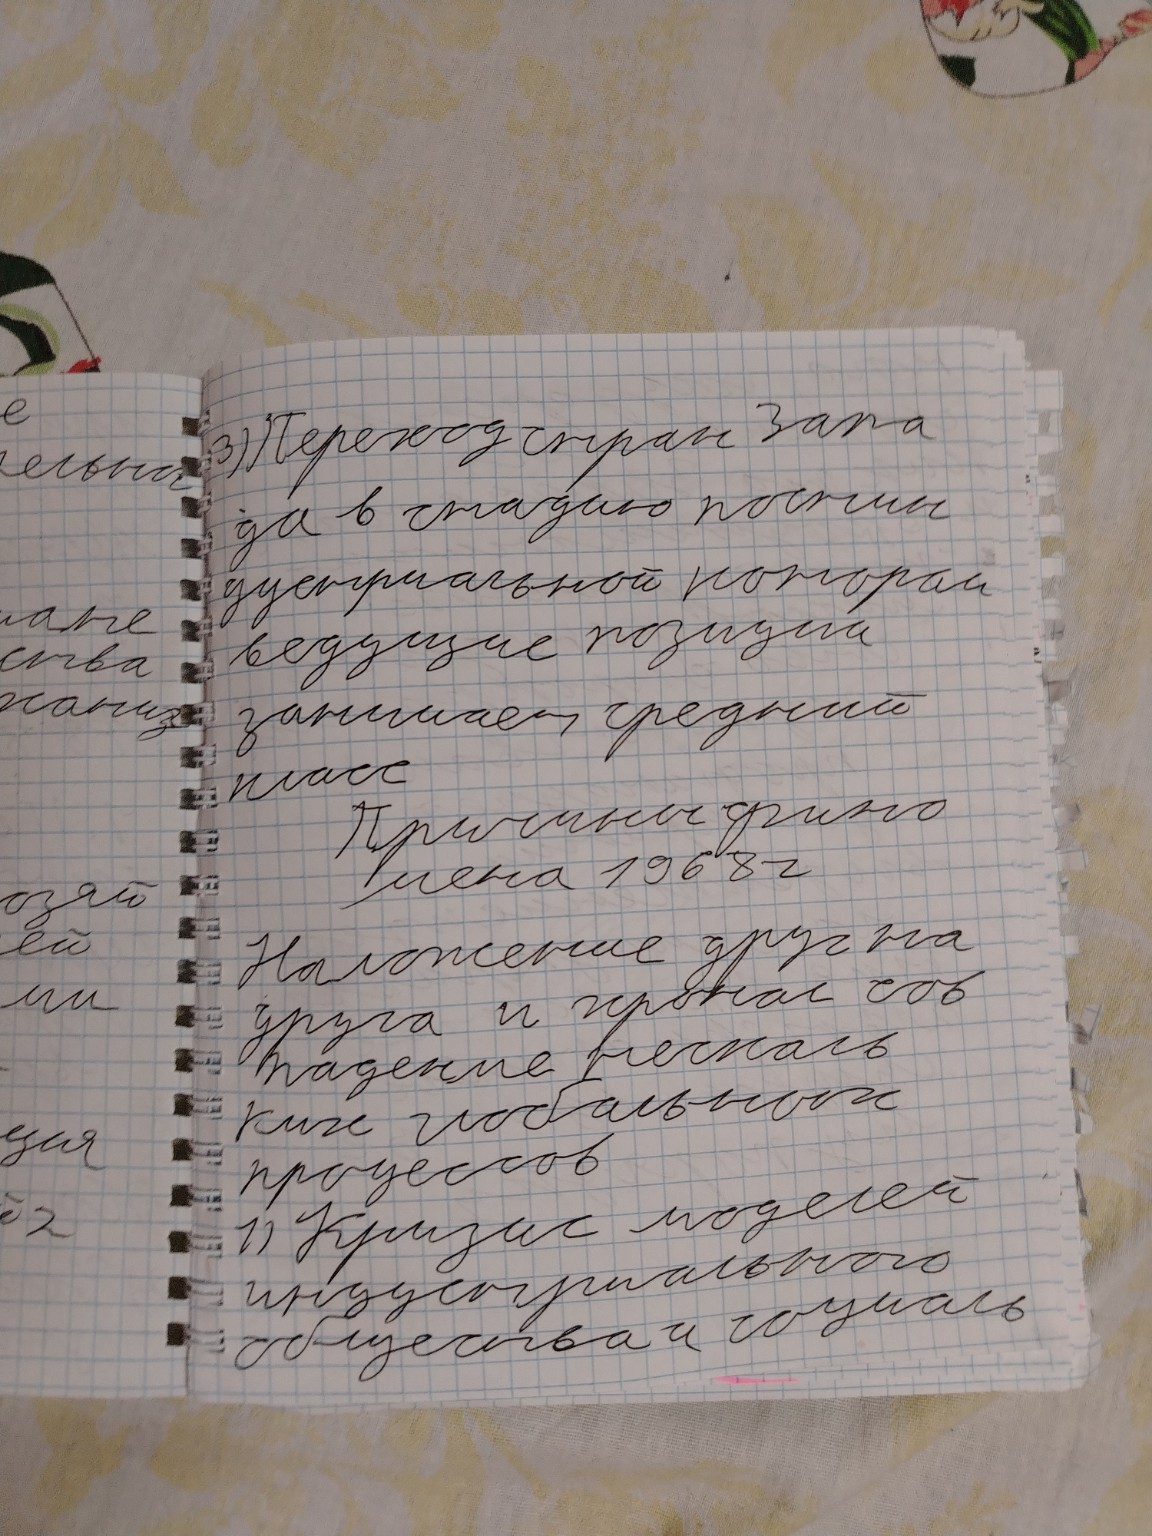 е
тельна
мане
ства
ханиз
озяй
ей
ми
ция
2
3) Переход стран Запа
да в стадию постин
дустриальной которая
ведущие позиции
занимает средний
класс
Причины фино
мена 1968г
Наложение друг на
друга и хронал сов
падение нескаль
ких глобальных
процессов
1) Кризис моделей
индустриального
общества и социаль